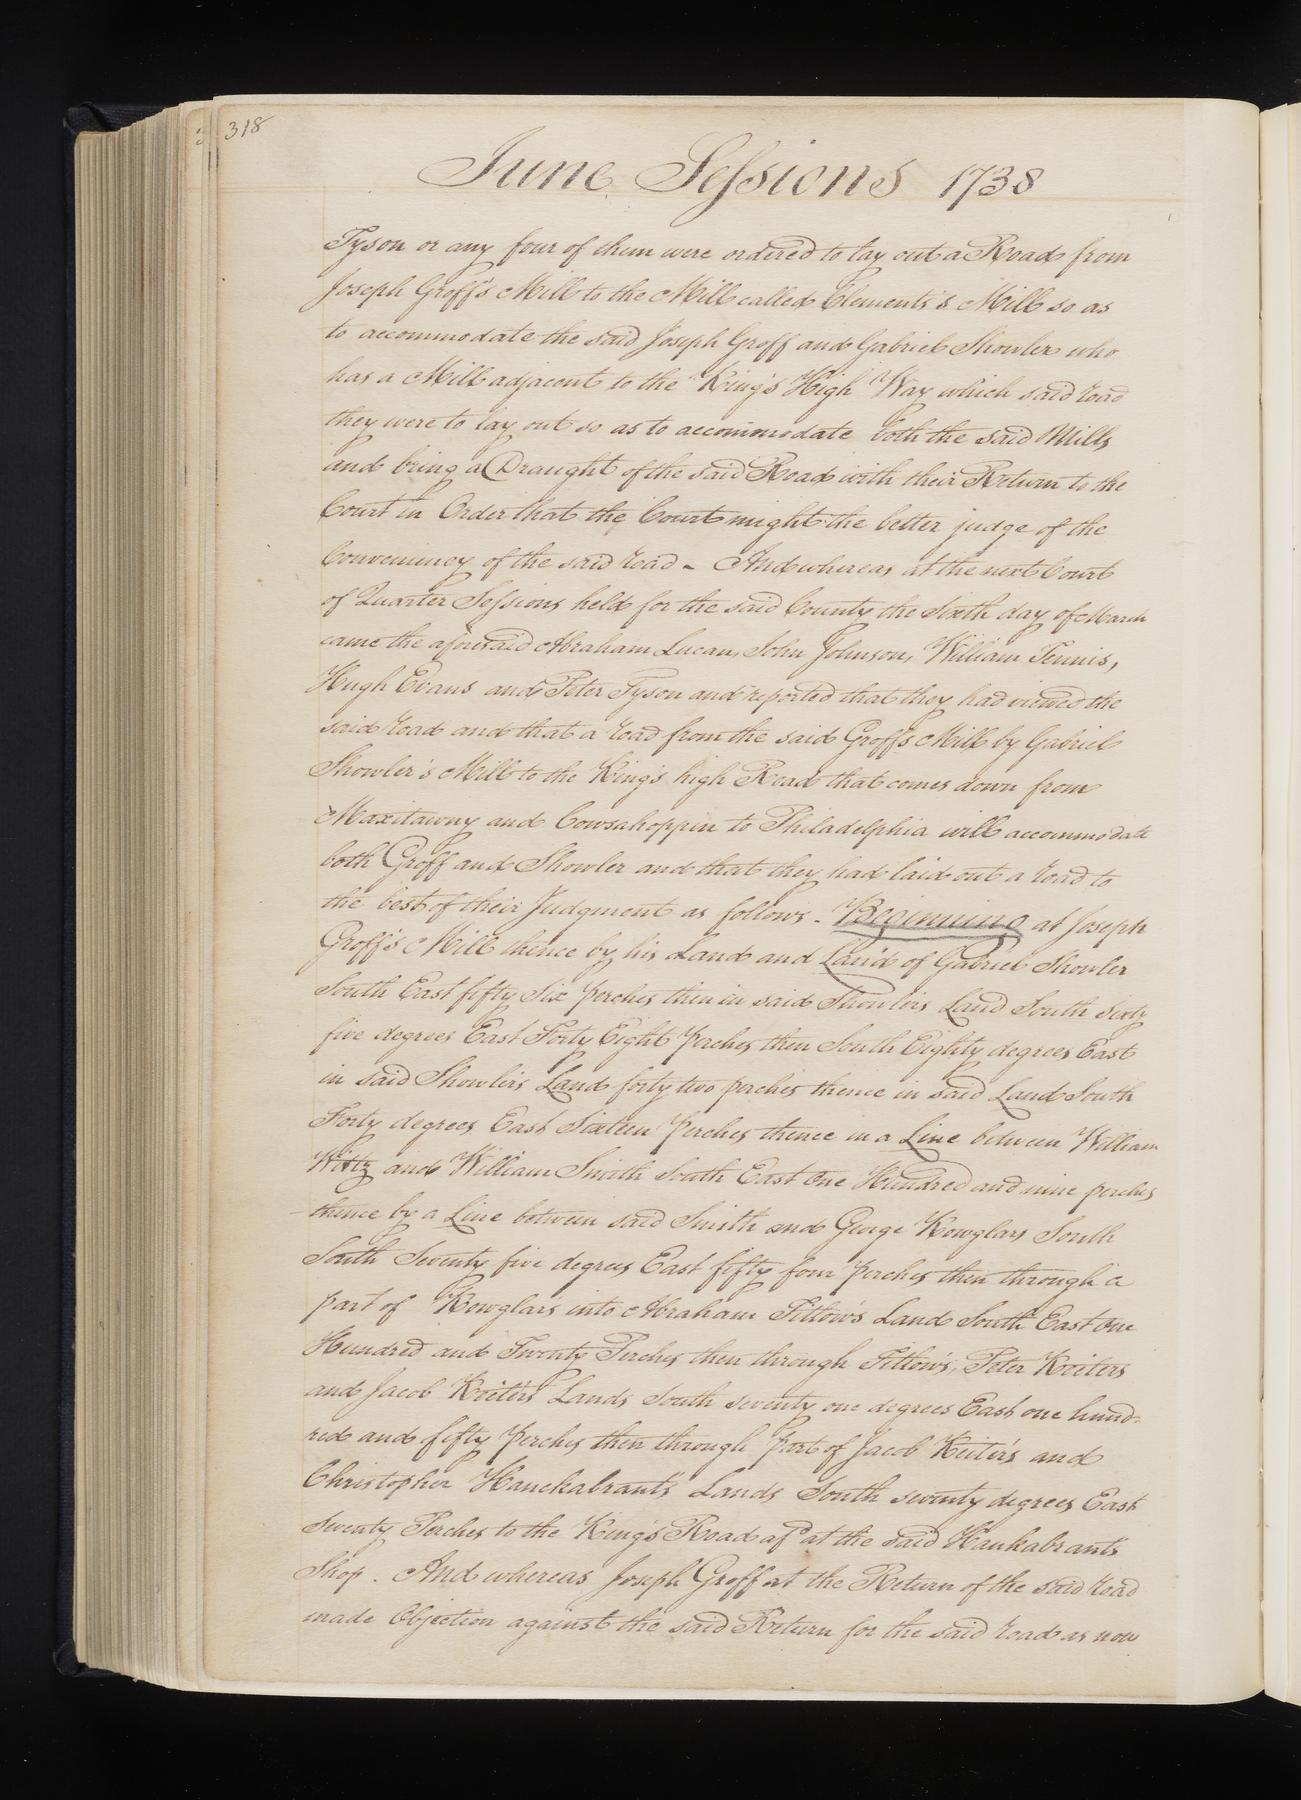 318
June Sessions 1738
Tyson or any four of them were ordered to lay out a Road from
Joseph Groff's Mill to the Mill called Clements's Mill so as
to accommodate the said Joseph Groff and Gabriel Showler who
has a Mill adjacent to the King's High Way which said road
they were to lay out so as to accommodate both the said Mills
and bring a Draught of the said Road with their Return to the
Court in Order that the Court might the better judge of the
Conveniency of the said road - And whereas at the next Court
of Quarter Sessions held for the said County the Sixth day of March
came the aforesaid Abraham Lucan, John Johnson, William Tennis,
Hugh Evans and Peter Tyson and reported that they had viewed the
said road and that a road from the said Groff's Mill by Gabriel
Showler's Mill to the King's high Road that comes down from
Maxitawny and Cowsahoppin to Philadelphia will accommodate
both Groff and Showler and that they had laid out a road to
the best of their Judgment as follows - Beginning at Joseph
Groff's Mill thence by his Land and Land of Gabriel Showler
South East fifty Six perches then in said Showlers Land South Sixty
five degrees East Forty Eight perches then South Eighty degrees East
in said Showlers Land forty two perches thence in said Land South
Forty degrees East Sixteen perches thence in a Line between William
and William Smith South East One Hundred and nine perches
thence by a Line between said Smith and George Kowglars South
South Seventy five degrees East fifty four perches then through a
part of Kowglars into Abraham Tittow's Land South East One
Hundred and Twenty Perches then through Tittow's, Peter Koeters
and Jacob Koeters Lands South seventy one degrees East one hund-
red and fifty perches then through part of Jacob Keiters and
Christopher Hauckabrants Lands South seventy degrees East
Seventy Perches to the King's Road afd at the said Haukabrants
Shop. And whereas Joseph Groff at the Return of the said road
made Objection against the said Return for the said road as now